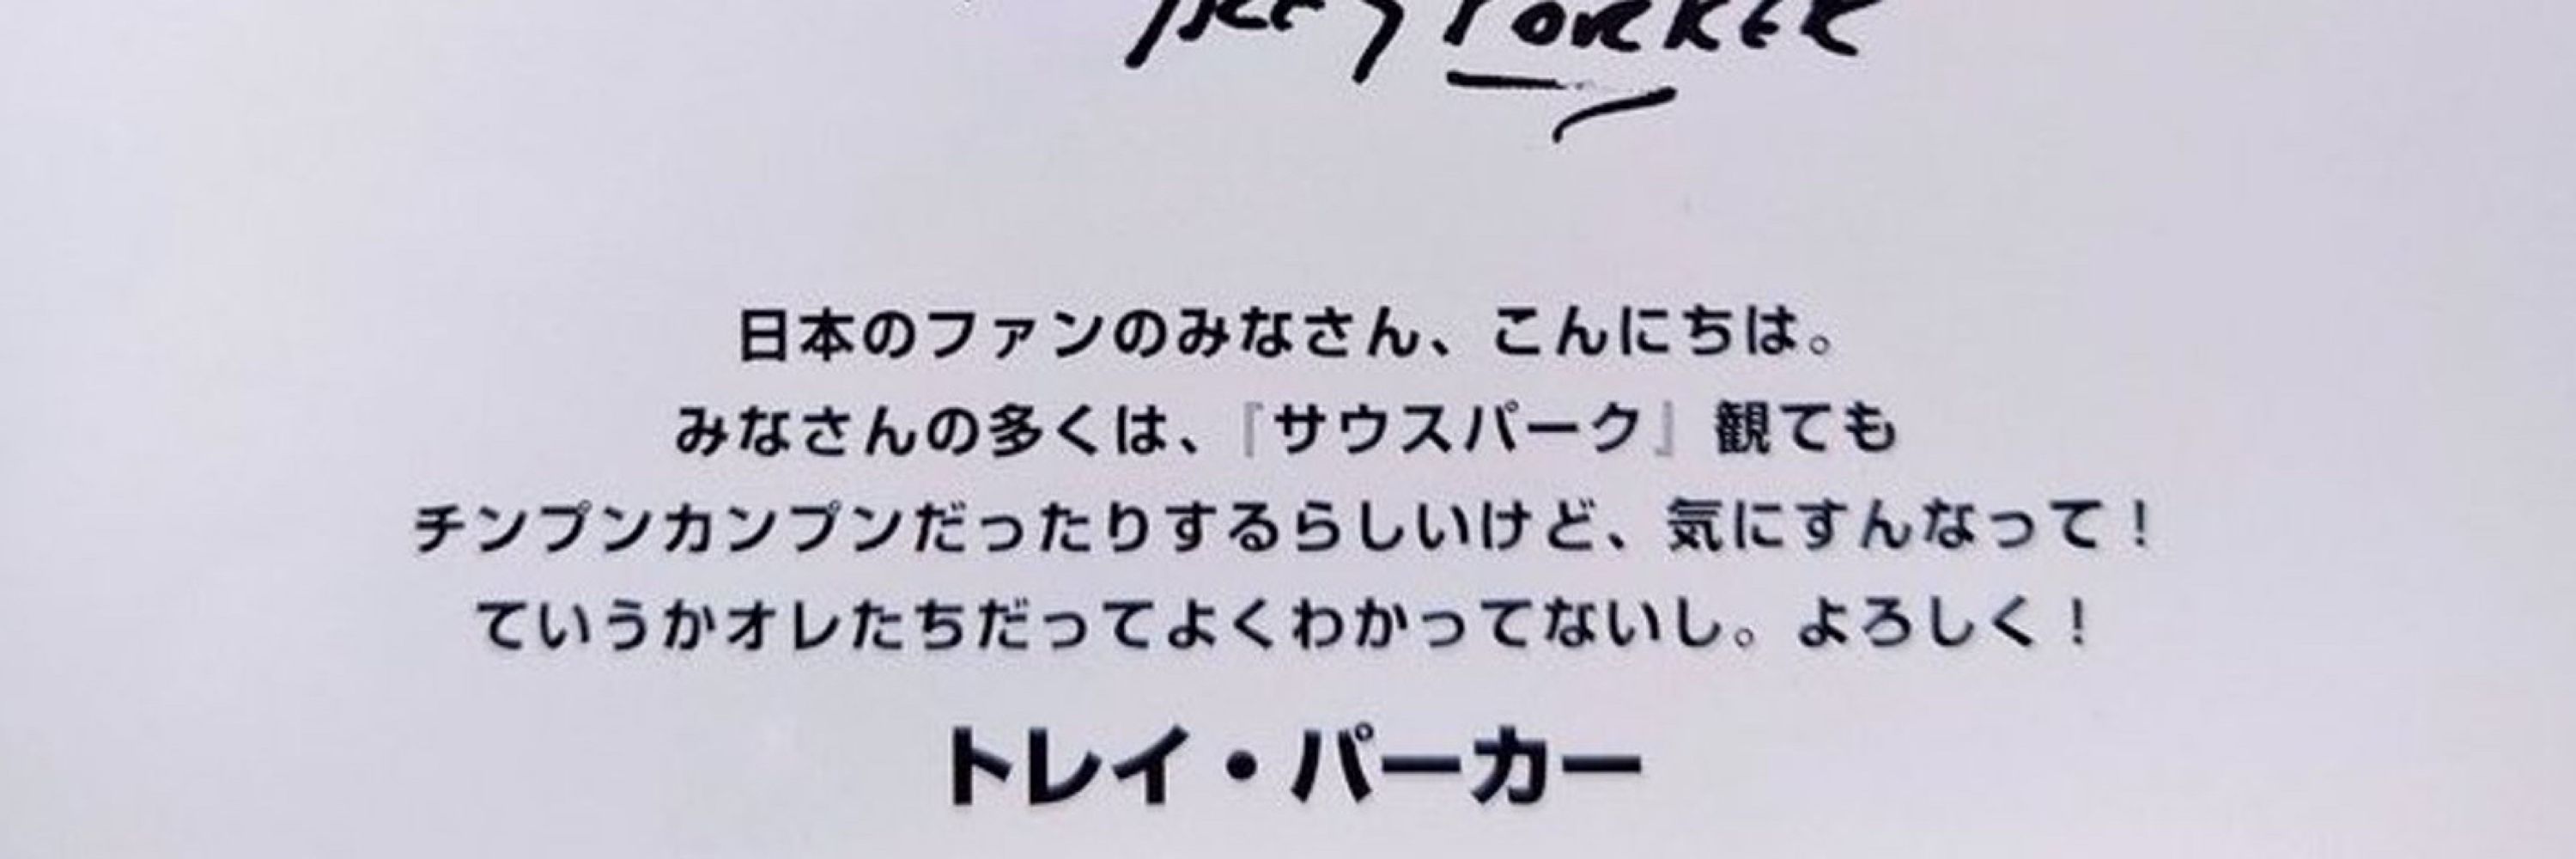 Trey Parker
日本のファンのみなさん、こんにちは。
みなさんの多くは、『サウスパーク』観ても
チンプンカンプンだったりするらしいけど、気にすんなって！
ていうかオレたちだってよくわかってないし。よろしく！
トレイ・パーカー